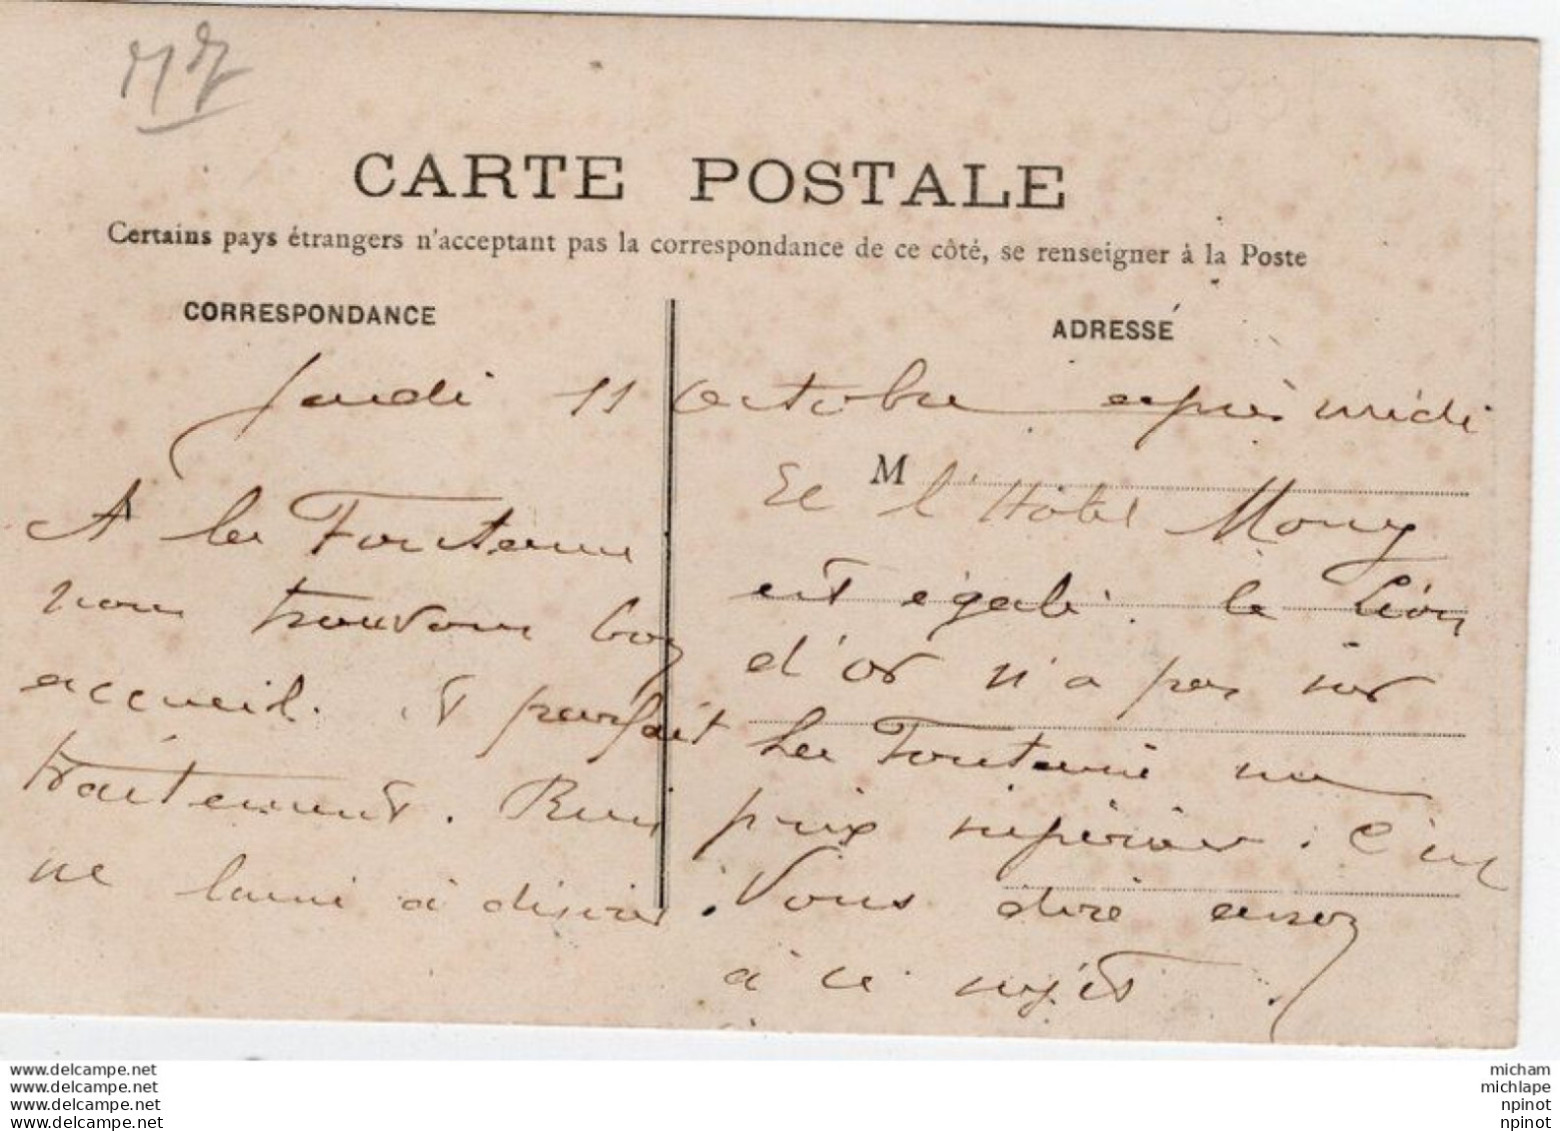 CARTE POSTALE
Certains pays étrangers n'acceptant pas la correspondance de ce côté, se renseigner à la Poste
CORRESPONDANCE
ADRESSE
Jeudi 11 Octobre après midi
A la Fontaine
nous trouvons bon
accueil. et parfait
traitement. Rien
ne laisse à désirer.
M
Et l'Hôtel Mouy
est égalé. le Lion
d'or n'a pas sur
La Fontaine un
prix supérieur. C'est
Vous dire assez
à ce sujet.
www.delcampe.net
www.delcampe.net
www.delcampe.net
www.delcampe.net
micham
michlape
npinot
npinot